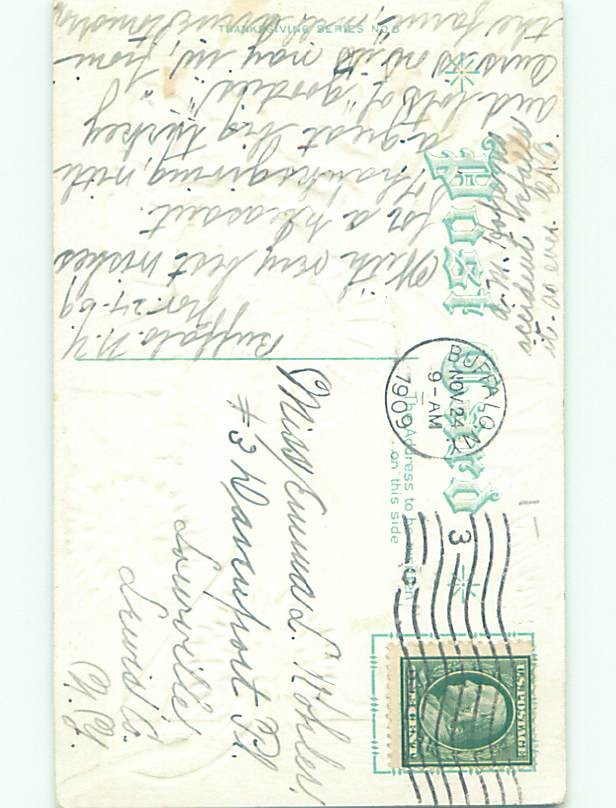 THANKSGIVING SERIES NO. 8
Post Card
The Address to be
on this side
BUFFALO, N.Y.
NOV 24
9-AM
1909
3
U.S. POSTAGE
ONE CENT
Buffalo. N.Y.
Nov. 24-09
With very best wishes
for a pleasant
Thanksgiving, with
a great big turkey
and lots of "goodies" from
ours
the same,
accident
it - as ever
Miss Emma L. Kohler,
#3 Davenport Pl.
Lowville
Lewis Co.
N.Y.